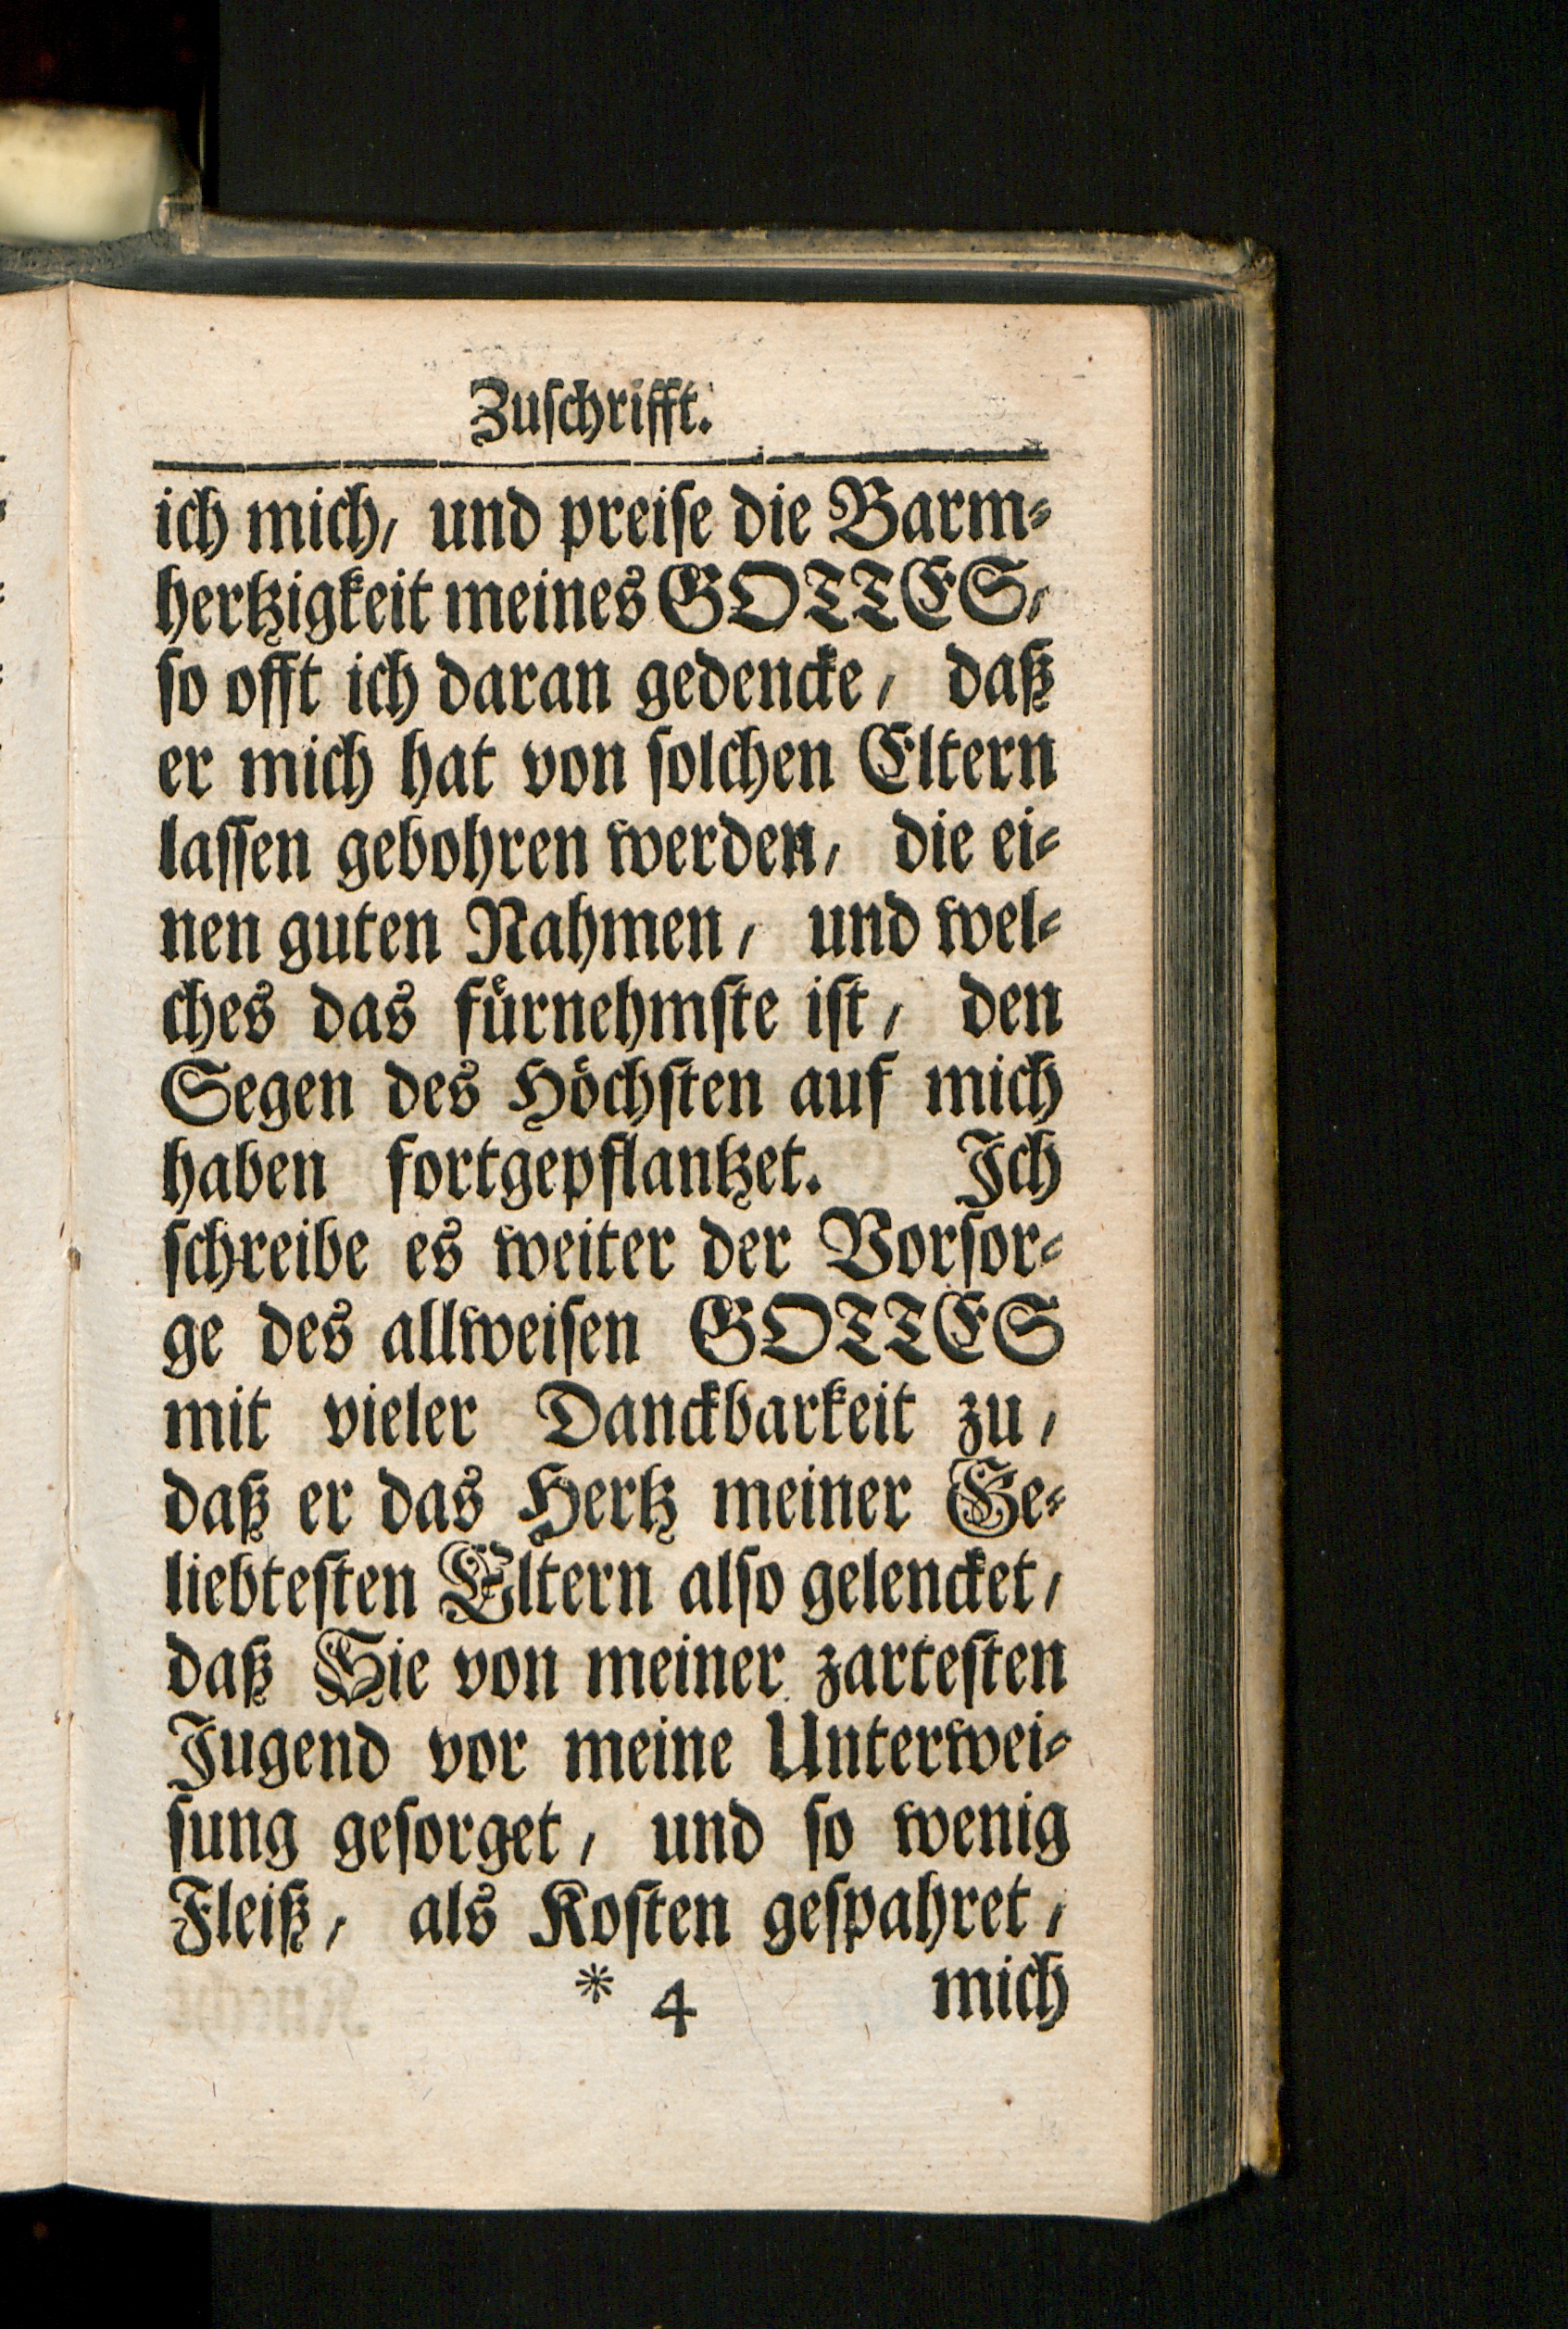 Zuschrifft.
ich mich, und preise die Barm-
hertzigkeit meines GOTTES,
so offt ich daran gedencke, daß
er mich hat von solchen Eltern
lassen gebohren werden, die ei-
nen guten Nahmen, und wel-
ches das fürnehmste ist, den
Segen des Höchsten auf mich
haben fortgepflantzet. Ich
schreibe es weiter der Vorsor-
ge des allweisen GOTTES
mit vieler Danckbarkeit zu,
daß er das Hertz meiner Ge-
liebtesten Eltern also gelencket,
daß Sie von meiner zartesten
Jugend vor meine Unterwei-
sung gesorget, und so wenig
Fleiß, als Kosten gespahret,
* 4 mich